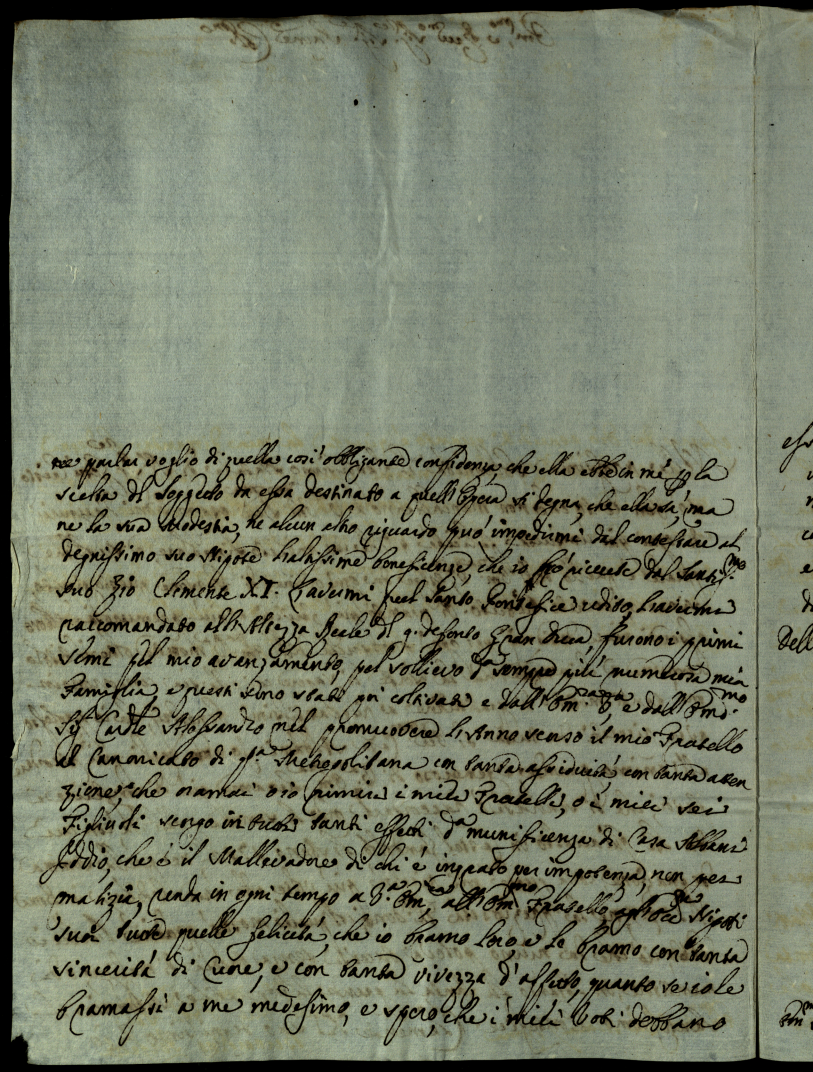 ne parlai, voglio di quella così obbligante confidenza, che ella ebbe in me p la
scelta del soggetto da essa destinato a quell' si degna, che ella sà, ma
ne la sua modestia, ne alcun altro riguardo può impedirmi dal confessare al
degnissimo suo Nipote l'altissime beneficenze, che io riceuete dal Santis.mo
suo Zio Clemente XI. L'avermi quel Santo Pontefice udito, l'avermi
raccomandato all'Altezza Reale del q. defonto Gran Duca, furono i primi
semi pel mio avanzamento, pel sollievo d.a sempre più numerosa mia
Famiglia, e questi sono stati poi coltivati e dall' Em.za V.a, e dall' Em.mo
Sig. Card.le Alessandro nel promuovere l'Anno scorso il mio Fratello
al Canonicato di q.ta Metropolitana con tanta assiduità, con tanta atten
zione, che oramai o io rimiri i miei Fratelli, o i miei sei
Figliuoli scorgo in tutti tanti effetti d.a munificenza di Casa Albani
Iddio, che è il Mallevadore di chi è ingrato per impotenza, non per
malizia, renda in ogni tempo a V.a Em.za, all' Em.mo Fratello, Nipoti
suoi tutte quelle felicità, che io bramo loro, e le bramo con tanta
sincerità di cuore, e con tanta vivezza d'affetto, quanto se io le
bramassi a me medesimo, e spero, che i miei voti debbano